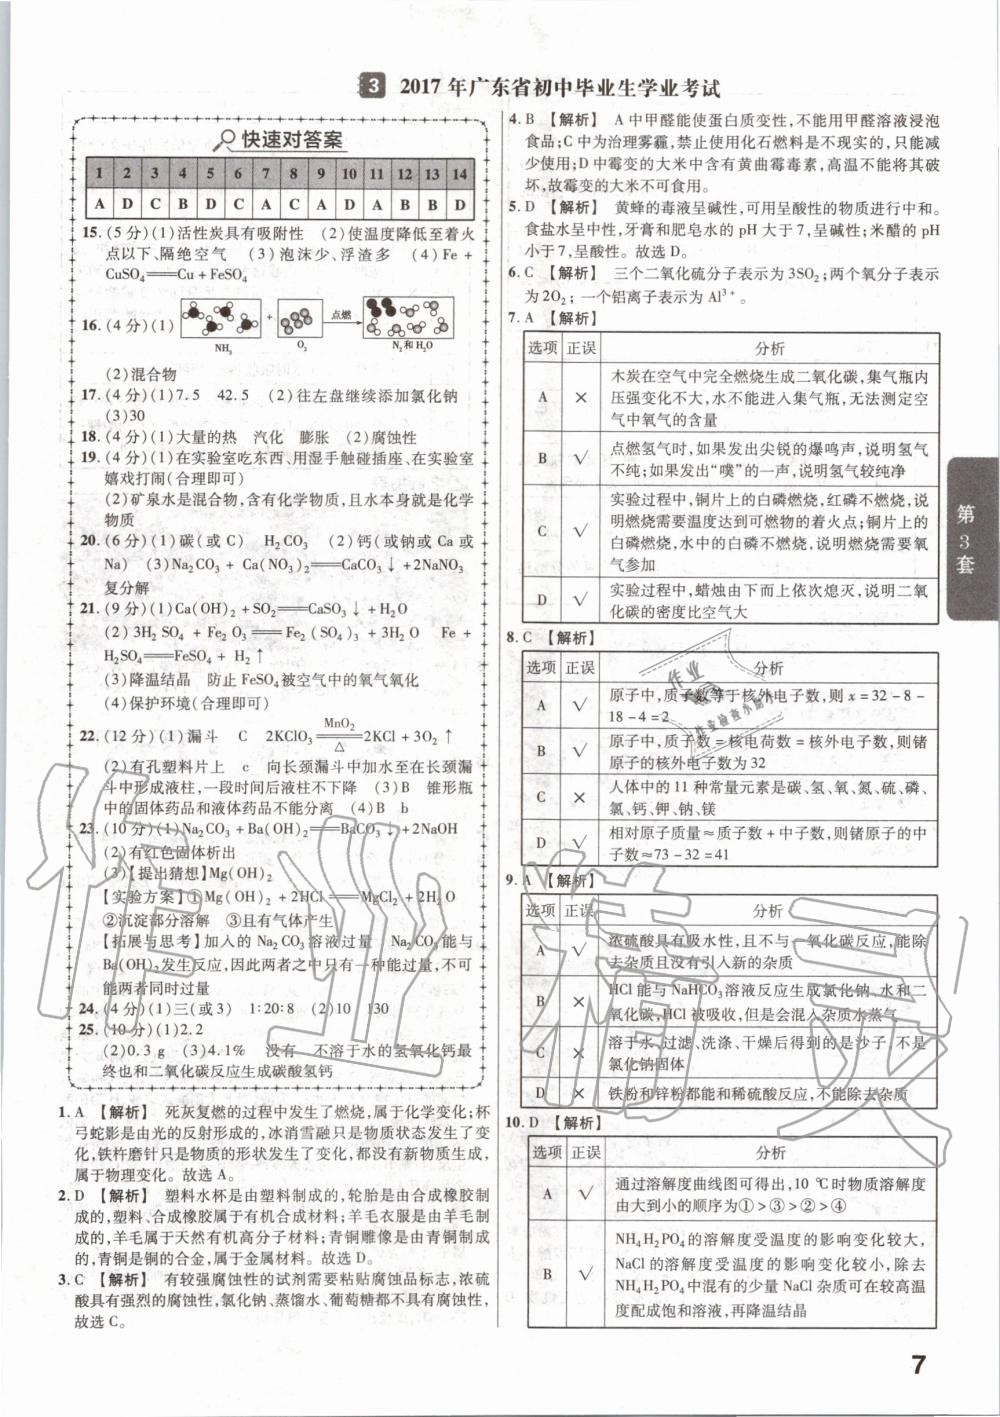 3 2017 年广东省初中毕业生学业考试
快速对答案
1 2 3 4 5 6 7 8 9 10 11 12 13 14
A D C B D C A C A D A B B D
15. (5 分)(1)活性炭具有吸附性 (2)使温度降低至着火
点以下、隔绝空气 (3)泡沫少、浮渣多 (4)Fe +
CuSO₄══Cu + FeSO₄
16. (4 分)(1) + 点燃
NH₃ O₂ N₂和 H₂O
(2)混合物
17. (4 分)(1)7.5 42.5 (2)往左盘继续添加氯化钠
(3)30
18. (4 分)(1)大量的热 汽化 膨胀 (2)腐蚀性
19. (4 分)(1)在实验室吃东西、用湿手触碰插座、在实验室
嬉戏打闹(合理即可)
(2)矿泉水是混合物,含有化学物质,且水本身就是化学
物质
20. (6 分)(1)碳(或 C) H₂CO₃ (2)钙(或钠或 Ca 或
Na) (3)Na₂CO₃ + Ca(NO₃)₂══CaCO₃↓+2NaNO₃
复分解
21. (9 分)(1)Ca(OH)₂ +SO₂══CaSO₃↓+H₂O
(2) 3H₂SO₄ + Fe₂O₃══Fe₂(SO₄)₃ +3H₂O Fe +
H₂SO₄══FeSO₄ + H₂↑
(3)降温结晶 防止 FeSO₄被空气中的氧气氧化
(4)保护环境(合理即可)
22. (12 分)(1)漏斗 C 2KClO₃ MnO₂══△ 2KCl + 3O₂↑
(2)有孔塑料片上 c 向长颈漏斗中加水至在长颈漏
斗中形成液柱,一段时间后液柱不下降 (3)B 锥形瓶
中的固体药品和液体药品不能分离 (4)B b
23. (10 分)(1)Na₂CO₃ + Ba(OH)₂══BaCO₃↓+2NaOH
(2)有红色固体析出
(3)【提出猜想】Mg(OH)₂
【实验方案】①Mg(OH)₂ + 2HCl══MgCl₂ +2H₂O
②沉淀部分溶解 ③且有气体产生
【拓展与思考】加入的 Na₂CO₃溶液过量 Na₂CO₃能与
Ba(OH)₂发生反应,因此两者之中只有一种能过量,不可
能两者同时过量
24. (4 分)(1)三(或 3) 1∶20∶8 (2)10 130
25. (10 分)(1)2.2
(2)0.3 g (3)4.1% 没有 不溶于水的氢氧化钙最
终也和二氧化碳反应生成碳酸氢钙
1. A 【解析】 死灰复燃的过程中发生了燃烧,属于化学变化;杯
弓蛇影是由光的反射形成的,冰消雪融只是物质状态发生了变
化,铁杵磨针只是物质的形状发生了变化,都没有新物质生成,
属于物理变化。故选 A。
2. D 【解析】 塑料水杯是由塑料制成的,轮胎是由合成橡胶制
成的,塑料、合成橡胶属于有机合成材料;羊毛衣服是由羊毛制
成的,羊毛属于天然有机高分子材料;青铜雕像是由青铜制成
的,青铜是铜的合金,属于金属材料。故选 D。
3. C 【解析】 有较强腐蚀性的试剂需要粘贴腐蚀品标志,浓硫
酸具有强烈的腐蚀性,氯化钠、蒸馏水、葡萄糖都不具有腐蚀性,
故选 C。
4. B 【解析】 A 中甲醛能使蛋白质变性,不能用甲醛溶液浸泡
食品;C 中为治理雾霾,禁止使用化石燃料是不现实的,只能减
少使用;D 中霉变的大米中含有黄曲霉毒素,高温不能将其破
坏,故霉变的大米不可食用。
5. D 【解析】 黄蜂的毒液呈碱性,可用呈酸性的物质进行中和。
食盐水呈中性,牙膏和肥皂水的 pH 大于 7,呈碱性;米醋的 pH
小于 7,呈酸性。故选 D。
6. C 【解析】 三个二氧化硫分子表示为 3SO₂;两个氧分子表示
为 2O₂;一个铝离子表示为 Al³⁺。
7. A 【解析】
选项 正误 分析
A × 木炭在空气中完全燃烧生成二氧化碳,集气瓶内
压强变化不大,水不能进入集气瓶,无法测定空
气中氧气的含量
B √ 点燃氢气时,如果发出尖锐的爆鸣声,说明氢气
不纯;如果发出“噗”的一声,说明氢气较纯净
C √ 实验过程中,铜片上的白磷燃烧,红磷不燃烧,说
明燃烧需要温度达到可燃物的着火点;铜片上的
白磷燃烧,水中的白磷不燃烧,说明燃烧需要氧
气参加
D √ 实验过程中,蜡烛由下而上依次熄灭,说明二氧
化碳的密度比空气大
8. C 【解析】
选项 正误 分析
A √ 原子中,质子数等于核外电子数,则 x = 32 - 8 -
18 - 4 = 2
B √ 原子中,质子数 = 核电荷数 = 核外电子数,则锗
原子的核外电子数为 32
C × 人体中的 11 种常量元素是碳、氢、氧、氮、硫、磷、
氯、钙、钾、钠、镁
D √ 相对原子质量≈质子数 + 中子数,则锗原子的中
子数≈73 - 32 = 41
9. A 【解析】
选项 正误 分析
A √ 浓硫酸具有吸水性,且不与一氧化碳反应,能除
去杂质且没有引入新的杂质
B × HCl 能与 NaHCO₃溶液反应生成氯化钠、水和二
氧化碳,HCl 被吸收,但是会混入杂质水蒸气
C × 溶于水、过滤、洗涤、干燥后得到的是沙子,不是
氯化钠固体
D × 铁粉和锌粉都能和稀硫酸反应,不能除去杂质
10. D 【解析】
选项 正误 分析
A √ 通过溶解度曲线图可得出,10 ℃时物质溶解度
由大到小的顺序为①>③>②>④
B √ NH₄H₂PO₄的溶解度受温度的影响变化较大,
NaCl 的溶解度受温度的影响变化较小,除去
NH₄H₂PO₄中混有的少量 NaCl 杂质可在较高温
度配成饱和溶液,再降温结晶
第 3 套
作业
作业检查小助手
作业精灵
7